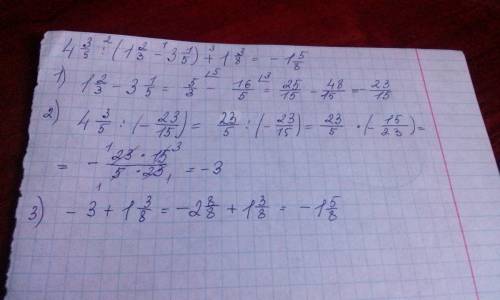 4 3/5 :² (1 2/3 -¹ 3 1/5) +³ 1 3/8 = -1 5/8
1) 1 2/3 - 3 1/5 = 5/3 \5 - 16/5 \3 = 25/15 - 48/15 = -23/15
2) 4 3/5 : (-23/15) = 23/5 : (-23/15) = 23/5 · (-15/23) =
= - ¹23 · 15³ / ₁5 · 23₁ = -3
3) -3 + 1 3/8 = -2 8/8 + 1 3/8 = -1 5/8